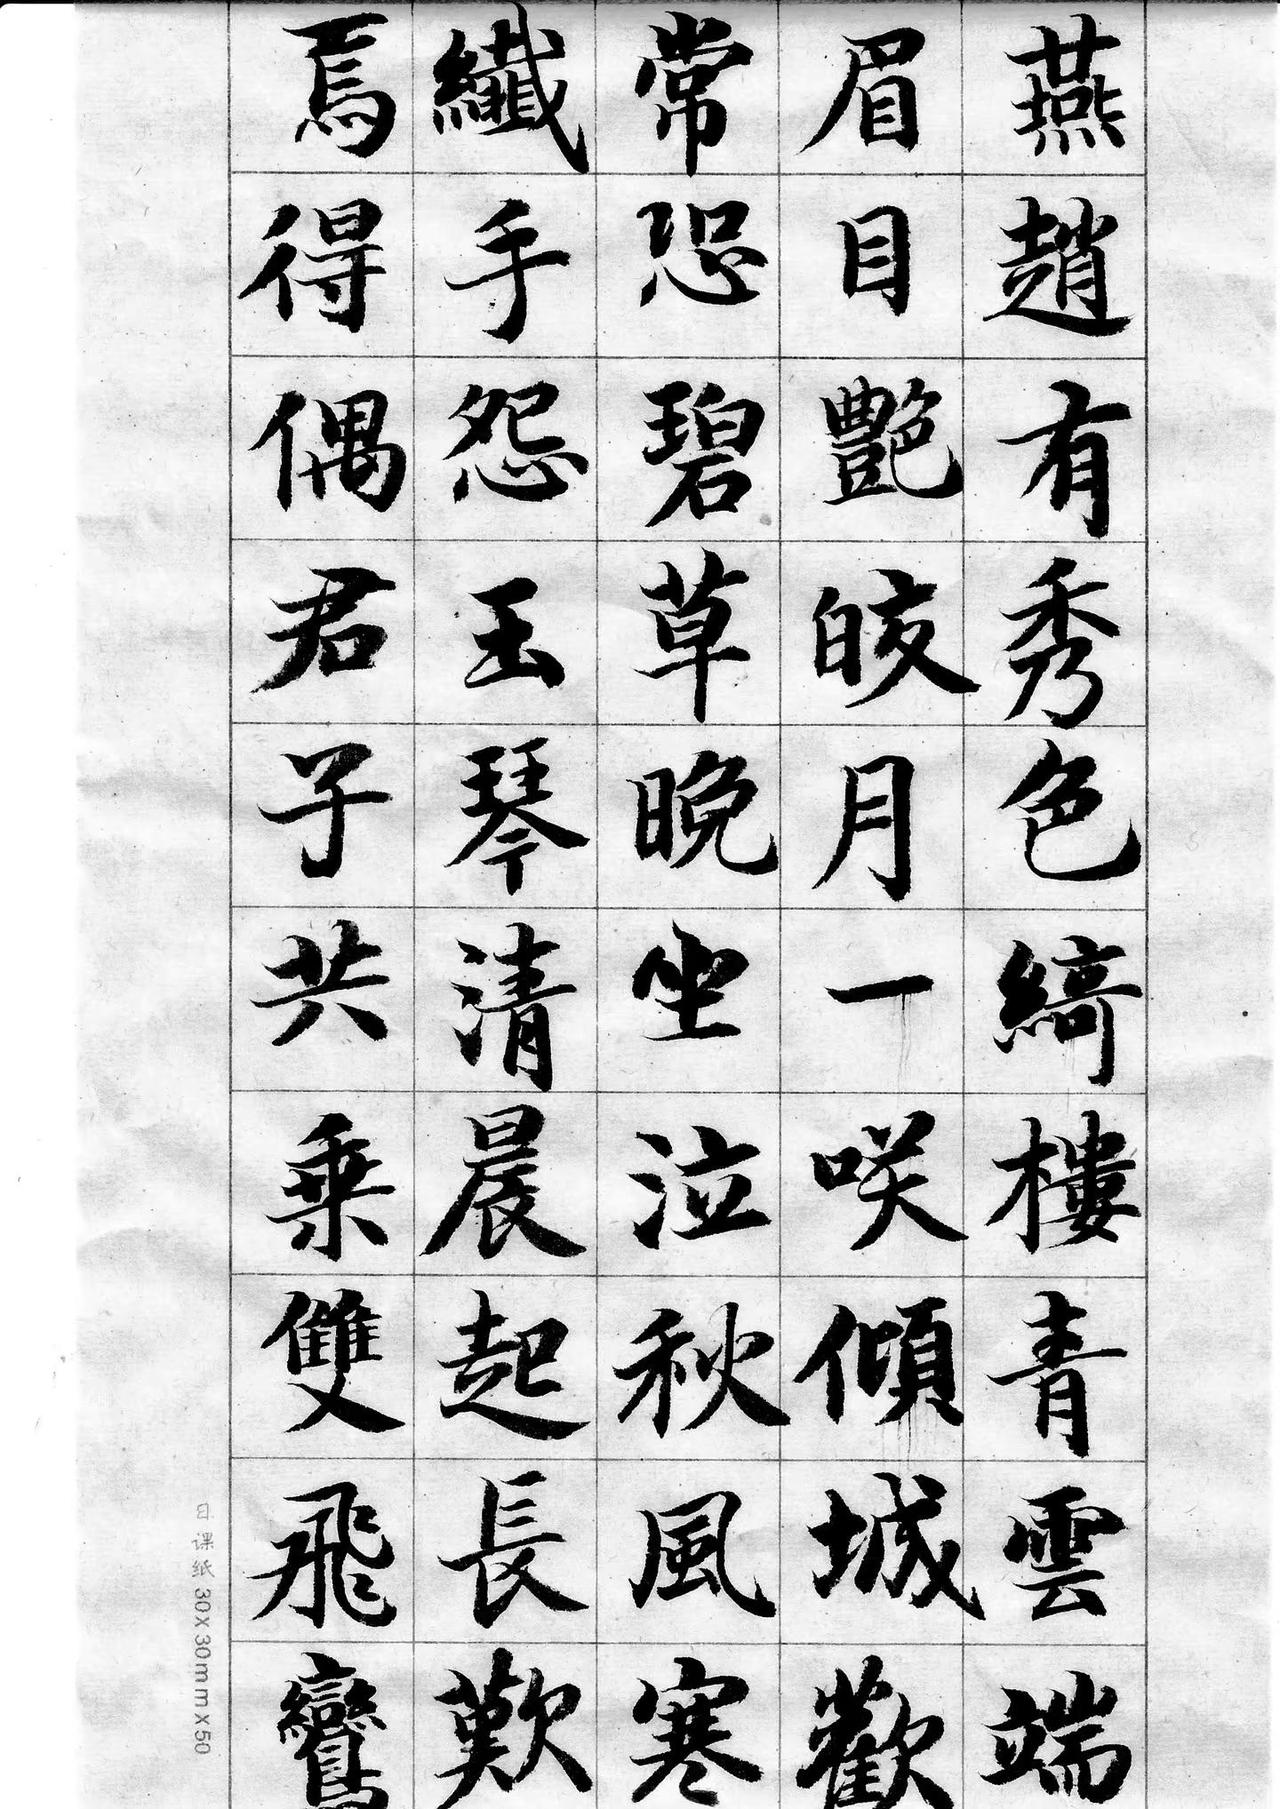 燕趙有秀色綺樓青雲端
眉目艷皎月一咲傾城歡
常恐碧草晚坐泣秋風寒
纖手怨玉琴清晨起長歎
焉得偶君子共乗雙飛鸞
日课纸 30x30mmx50